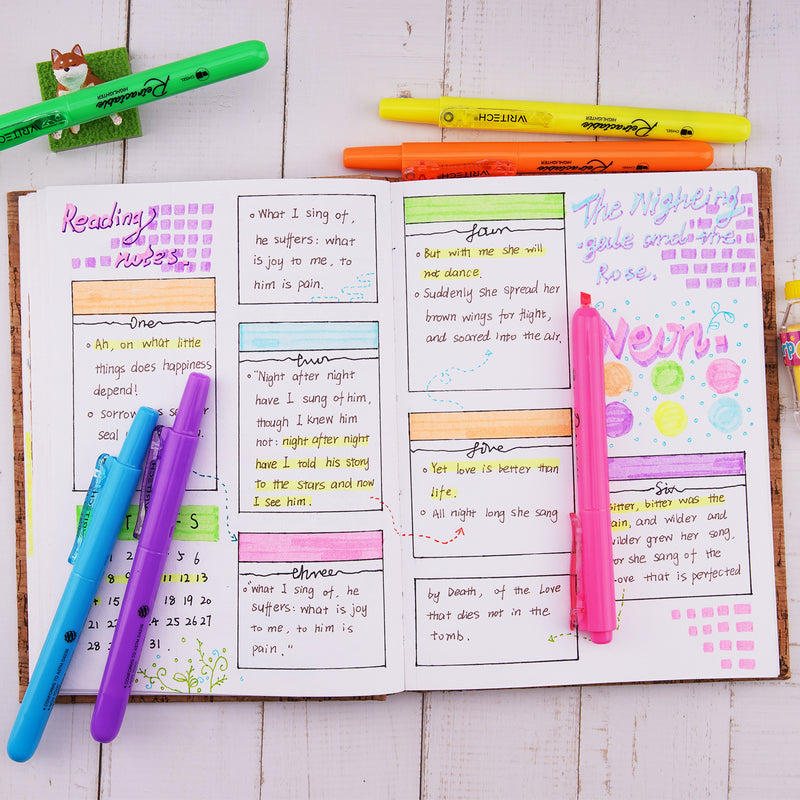 CHISEL
Retractable
HIGHLIGHTER
WRITECH
Retractable
HIGHLIGHTER
CHISEL
Retractable
HIGHLIGHTER
Reading
notes.
One
Ah, on what little
things does happiness
depend!
sorrow
seal
S
5 6
8 9 10 11 12 13
15 18 19 20
24 25 26 27
28 31.
CONFORMS TO ASTM D4236
CONFORMS TO ASTM D4236
What I sing of,
he suffers: what
is joy to me, to
him is pain.
"Night after night
have I sung of him,
though I knew him
not: night after night
have I told his story
to the stars and now
I see him.
three
"what I sing of, he
suffers: what is joy
to me, to him is
pain."
four
But with me she will
not dance.
Suddenly she spread her
brown wings for flight,
and soared into the air.
five
Yet love is better than
life.
All night long she sang
by Death, of the Love
that dies not in the
tomb.
The Nightin
-gale and the
Rose.
Neon.
Six
bitter, bitter was the
pain, and wilder and
wilder grew her song,
for she sang of the
Love that is perfected